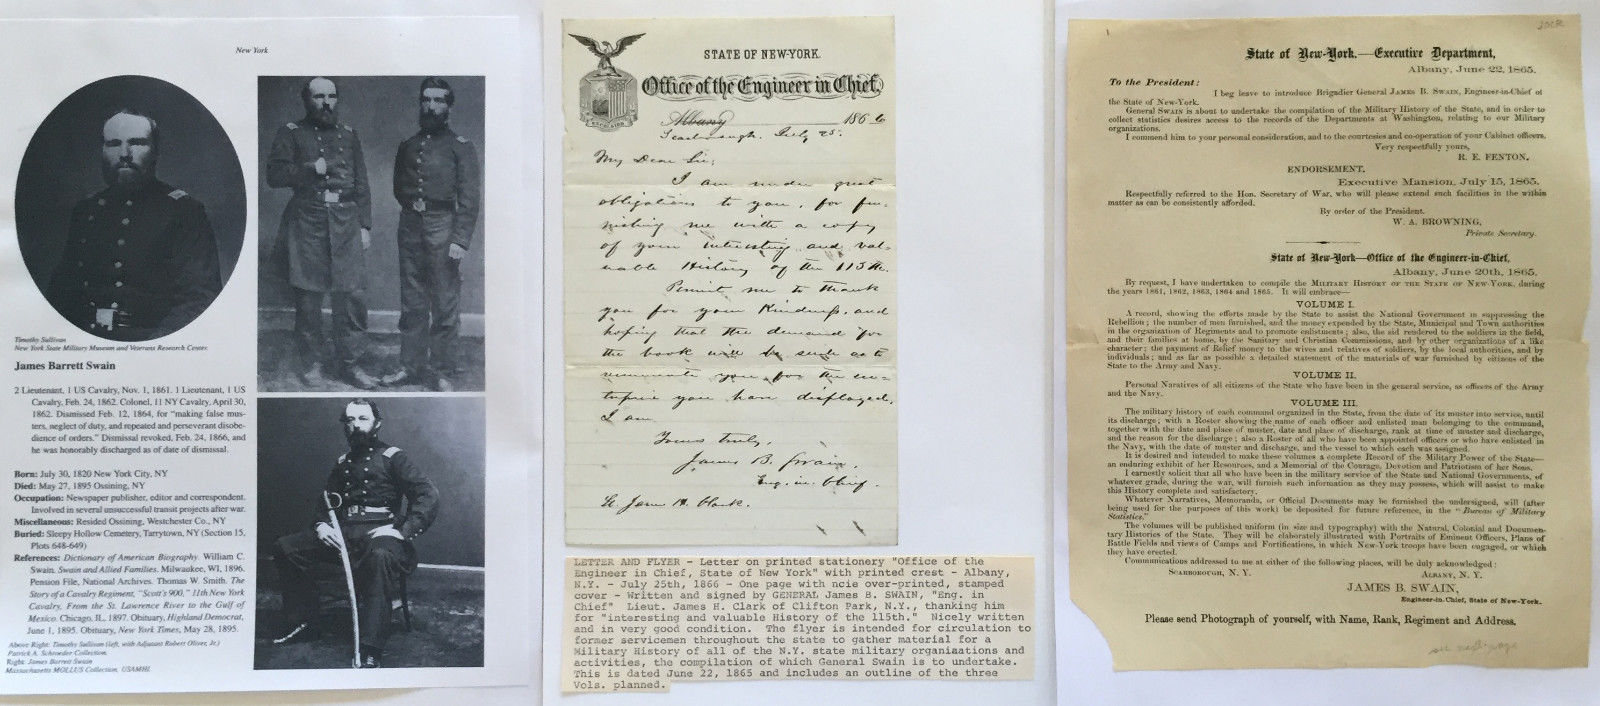 New York
Timothy Sullivan
New York State Military Museum and Veterans Research Center.
James Barrett Swain
2 Lieutenant, 1 US Cavalry, Nov. 1, 1861. 1 Lieutenant, 1 US
Cavalry, Feb. 24, 1862. Colonel, 11 NY Cavalry, April 30,
1862. Dismissed Feb. 12, 1864, for “making false mus-
ters, neglect of duty, and repeated and perseverant disobe-
dience of orders.” Dismissal revoked, Feb. 24, 1866, and
he was honorably discharged as of date of dismissal.
Born: July 30, 1820 New York City, NY
Died: May 27, 1895 Ossining, NY
Occupation: Newspaper publisher, editor and correspondent.
Involved in several unsuccessful transit projects after war.
Miscellaneous: Resided Ossining, Westchester Co., NY
Buried: Sleepy Hollow Cemetery, Tarrytown, NY (Section 15,
Plots 648-649)
References: Dictionary of American Biography. William C.
Swain. Swain and Allied Families. Milwaukee, WI, 1896.
Pension File, National Archives. Thomas W. Smith. The
Story of a Cavalry Regiment, “Scott's 900,” 11th New York
Cavalry, From the St. Lawrence River to the Gulf of
Mexico. Chicago, IL, 1897. Obituary, Highland Democrat,
June 1, 1895. Obituary, New York Times, May 28, 1895.
Above Right: Timothy Sullivan (left, with Adjutant Robert Oliver, Jr.)
Patrick A. Schroeder Collection.
Right: James Barrett Swain
Massachusetts MOLLUS Collection, USAMHI.
STATE OF NEW-YORK.
Office of the Engineer in Chief,
EXCELSIOR
Albany 1866
Scarborough, July 25.
My Dear Sir;
I am under great
obligations to you, for fur-
nishing me with a copy
of your interesting and val-
uable History of the 115th.
Permit me to thank
you for your Kindness, and
hoping that the demand for
the book will be such as to
remunerate you for the en-
terprise you have displayed,
I am
Yours truly,
James B. Swain,
Eng. in Chief.
Lt James H. Clark.
LETTER AND FLYER - Letter on printed stationery "Office of the
Engineer in Chief, State of New York" with printed crest - Albany,
N.Y. - July 25th, 1866 - One page with ncie over-printed, stamped
cover - Written and signed by GENERAL James B. SWAIN, "Eng. in
Chief" Lieut. James H. Clark of Clifton Park, N.Y., thanking him
for "interesting and valuable History of the 115th." Nicely written
and in very good condition. The flyer is intended for circulation to
former servicemen throughout the state to gather material for a
Military History of all of the N.Y. state military organiaations and
activities, the compilation of which General Swain is to undertake.
This is dated June 22, 1865 and includes an outline of the three
Vols. planned.
State of New-York.—Executive Department,
Albany, June 22, 1865.
To the President:
I beg leave to introduce Brigadier General JAMES B. SWAIN, Engineer-in-Chief of
the State of New-York.
General SWAIN is about to undertake the compilation of the Military History of the State, and in order to
collect statistics desires access to the records of the Departments at Washington, relating to our Military
organizations.
I commend him to your personal consideration, and to the courtesies and co-operation of your Cabinet officers.
Very respectfully yours,
R. E. FENTON.
ENDORSEMENT.
Executive Mansion, July 15, 1865.
Respectfully referred to the Hon. Secretary of War, who will please extend such facilities in the within
matter as can be consistently afforded.
By order of the President.
W. A. BROWNING,
Private Secretary.
State of New-York—Office of the Engineer-in-Chief,
Albany, June 20th, 1865.
By request, I have undertaken to compile the MILITARY HISTORY OF THE STATE OF NEW-YORK, during
the years 1861, 1862, 1863, 1864 and 1865. It will embrace—
VOLUME I.
A record, showing the efforts made by the State to assist the National Government in suppressing the
Rebellion; the number of men furnished, and the money expended by the State, Municipal and Town authorities
in the organization of Regiments and to promote enlistments; also, the aid rendered to the soldiers in the field,
and their families at home, by the Sanitary and Christian Commissions, and by other organizations of a like
character; the payment of Relief money to the wives and relatives of soldiers, by the local authorities, and by
individuals; and as far as possible a detailed statement of the materials of war furnished by citizens of the
State to the Army and Navy.
VOLUME II.
Personal Naratives of all citizens of the State who have been in the general service, as officers of the Army
and the Navy.
VOLUME III.
The military history of each command organized in the State, from the date of its muster into service, until
its discharge; with a Roster showing the name of each officer and enlisted man belonging to the command,
together with the date and place of muster, date and place of discharge, rank at time of muster and discharge,
and the reason for the discharge; also a Roster of all who have been appointed officers or who have enlisted in
the Navy, with the date of muster and discharge, and the vessel to which each was assigned.
It is desired and intended to make these volumes a complete Record of the Military Power of the State—
an enduring exhibit of her Resources, and a Memorial of the Courage, Devotion and Patriotism of her Sons.
I earnestly solicit that all who have been in the military service of the State and National Governments, of
whatever grade, during the war, will furnish such information as they may possess, which will assist to make
this History complete and satisfactory.
Whatever Narratives, Memoranda, or Official Documents may be furnished the undersigned, will (after
being used for the purposes of this work) be deposited for future reference, in the “Bureau of Military
Statistics.”
The volumes will be published uniform (in size and typography) with the Natural, Colonial and Documen-
tary Histories of the State. They will be elaborately illustrated with Portraits of Eminent Officers, Plans of
Battle Fields and views of Camps and Fortifications, in which New-York troops have been engaged, or which
they have erected.
Communications addressed to me at either of the following places, will be duly acknowledged:
SCARBOROUGH, N. Y. ALBANY, N. Y.
JAMES B. SWAIN,
Engineer-in-Chief, State of New-York.
Please send Photograph of yourself, with Name, Rank, Regiment and Address.
see next page